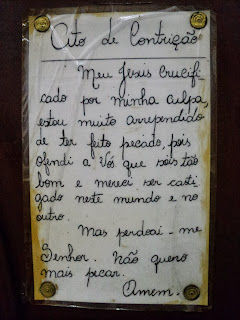 Ato de Contrição
Meu Jesus Crucifi-
cado por minha culpa,
estou muito arrependido
de ter feito pecado, pois
ofendi a Vós que sois tão
bom e mereci ser casti-
gado neste mundo e no
outro.
Mas perdoai-me
Senhor. Não quero
mais pecar.
Amem.